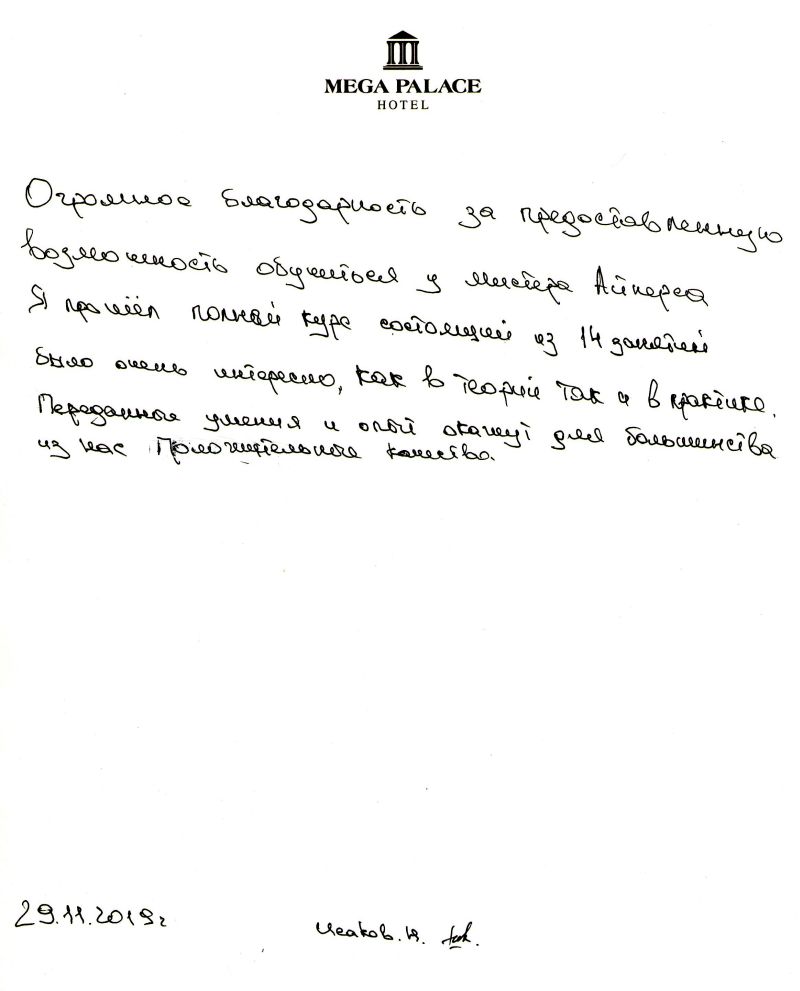 MEGA PALACE
HOTEL
Огромное благодарность за предоставленную
возможность обучиться у мистера Айперса
Я прошёл полный курс состоящий из 14 занятий
было очень интересно, как в теории так и в практике.
Переданные умения и опыт окажут для большинства
из нас Положительные качество.
29.11.2019г
Исаков.